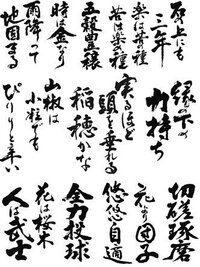 石の上にも
三年
楽は苦の種
苦は楽の種
五穀豊穣
時は金なり
雨降って
地固まる
縁の下の
力持ち
実るほど
頭を垂れる
稲穂かな
山椒は
小粒でも
ぴりりと辛い
切磋琢磨
花より団子
悠悠自適
全力投球
花は桜木
人は武士